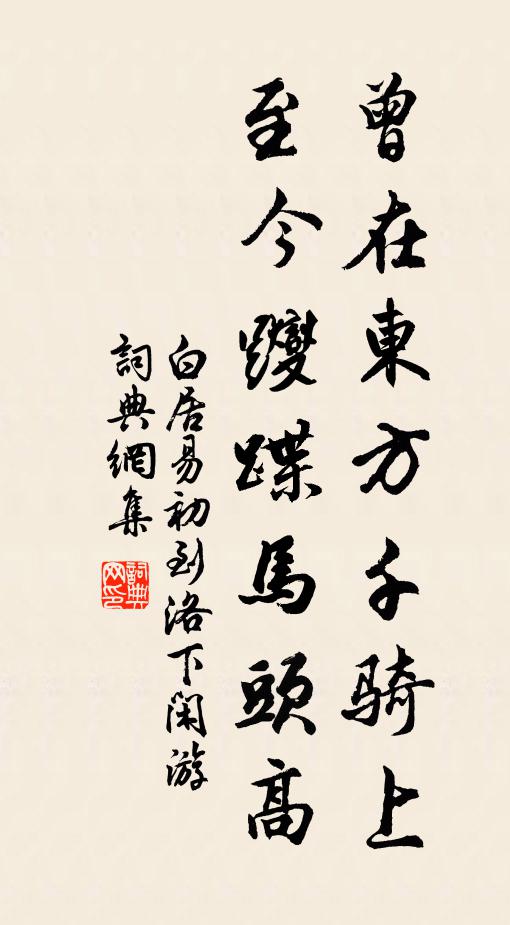 曾在東方千騎上
至今躞蹀馬頭高
白居易初到洛下閑游
詞典網集
詞典网印